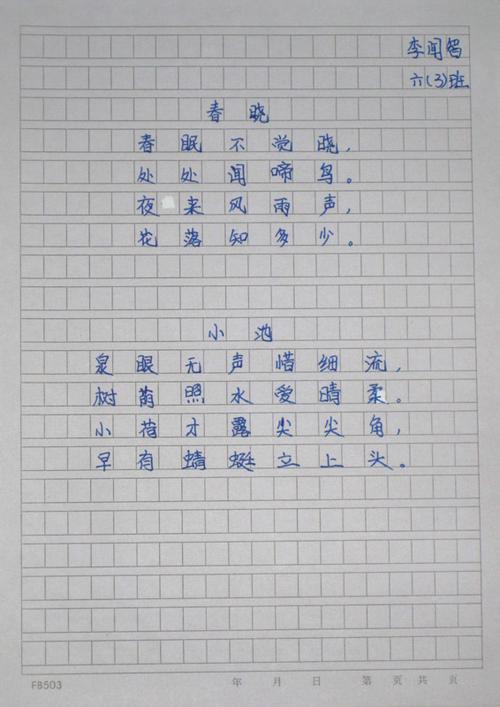 李闻智
六(3)班
春晓
春眠不觉晓，
处处闻啼鸟。
夜来风雨声，
花落知多少。
小池
泉眼无声惜细流，
树荫照水爱晴柔。
小荷才露尖尖角，
早有蜻蜓立上头。
FB503 年 月 日 第 页 共 页